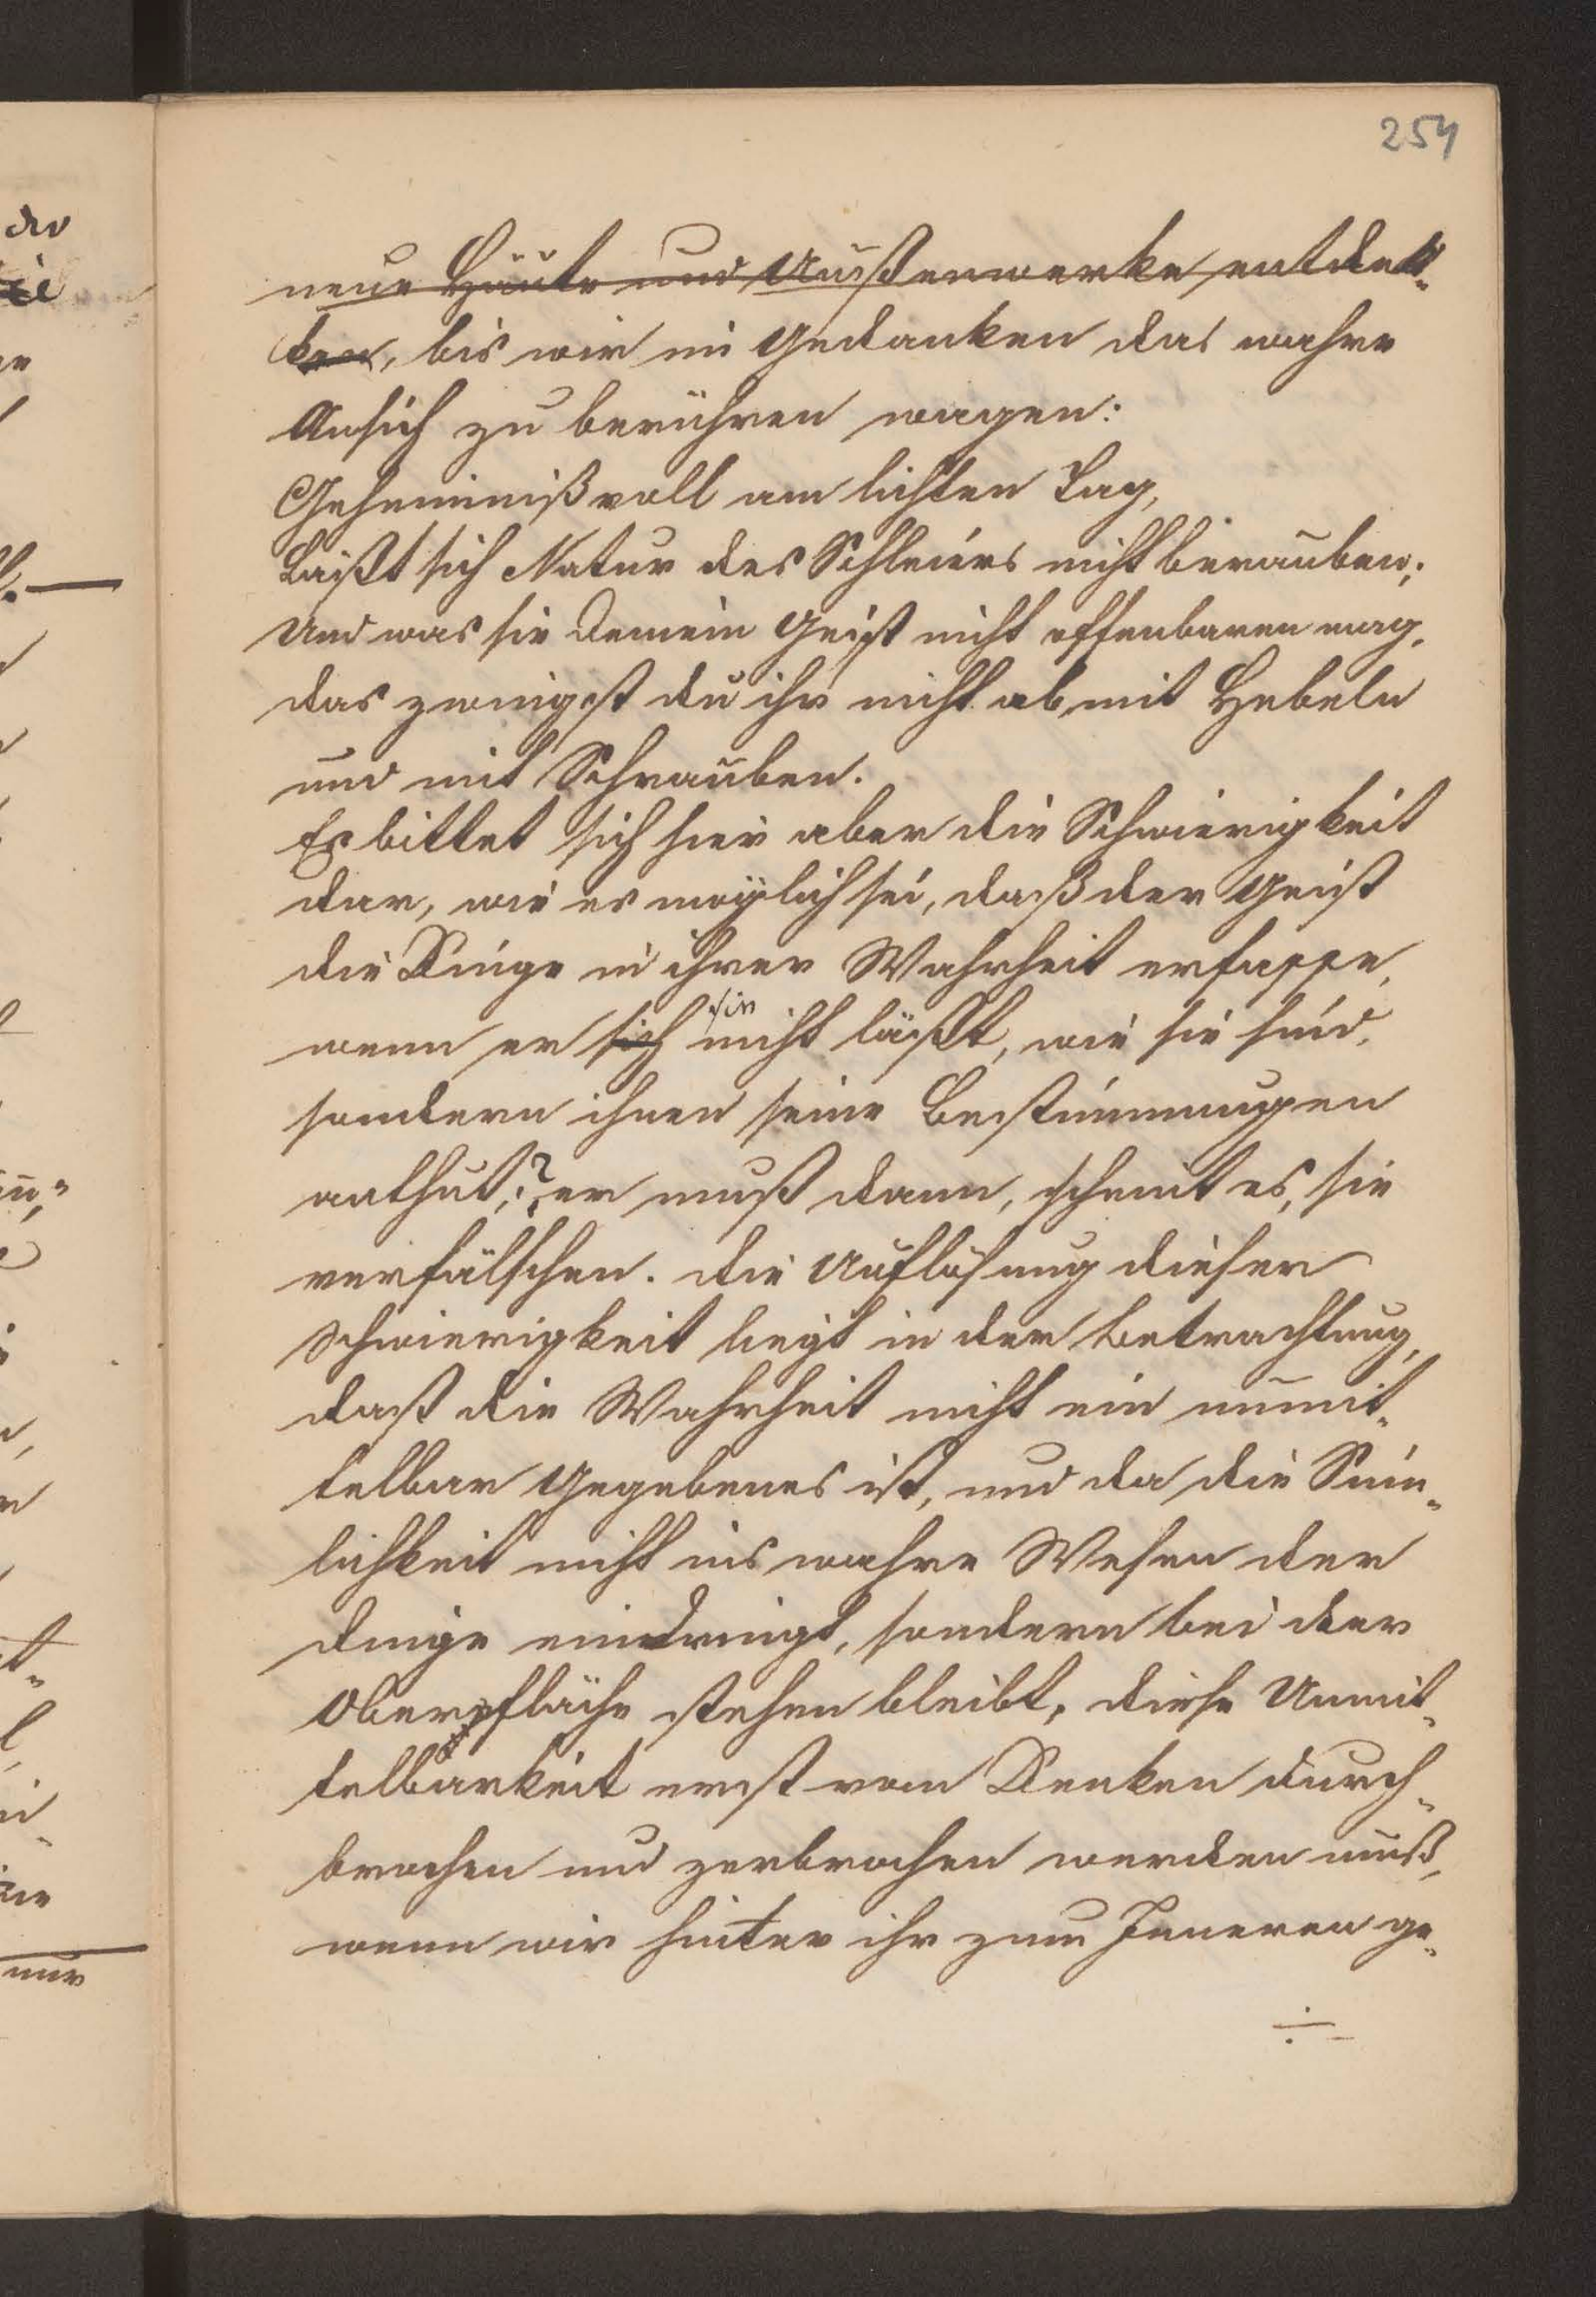 254
neue Häute und Außenwerke entdek-
ken, bis wir im Gedanken das wahre
Ansich zu berühren wagen:
Geheimnißvoll am lichten Tag,
Läßt sich Natur des Schleiers nicht berauben;
Und was sie Deinem Geist nicht offenbaren mag,
das zwingst du ihr nicht ab mit Hebeln
und mit Schrauben.
Es bittet sich hier aber die Schwierigkeit
dar, wie es möglich sei, daß der Geist
die Dinge in ihrer Wahrheit erfasse,
wenn er sich sie nicht läßt, wie sie sind,
sondern ihnen seine Bestimmungen
anthut;? er muß dann, scheint es, sie
verfälschen. Die Auflösung dieser
Schwierigkeit liegt in der Betrachtung,
daß die Wahrheit nicht ein unmit-
telbar Gegebenes ist, und da die Sinn-
lichkeit nicht ins wahre Wesen der
Dinge eindringt, sondern bei der
Oberfläche stehen bleibt, diese Unmit-
telbarkeit erst vom Denken durch-
brochen und zerbrochen werden muß,
wenn wir hinter ihr zum Inneren ge-